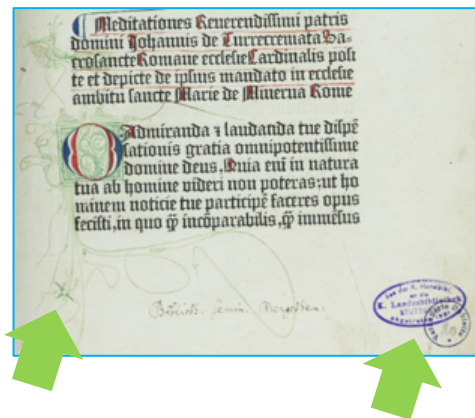 Meditationes Reuerendissimi patris
domini Johannis de Turrecremata Sa⸗
crosancte Romane ecclesie Cardinalis posi
te et depicte de ipsius mandato in ecclesie
ambitu sancte Marie de Minerua Rome
O Admiranda ⁊ laudanda tue dispē
sationis gratia omnipotentissime
domine deus. Quia enī in natura
tua ab homine videri non poteras; ut ho
minem noticie tue participē faceres opus
fecisti, in quo ꝙ incōparabilis, ꝙ immēsus
K. Landesbibliothek
STUTTGART